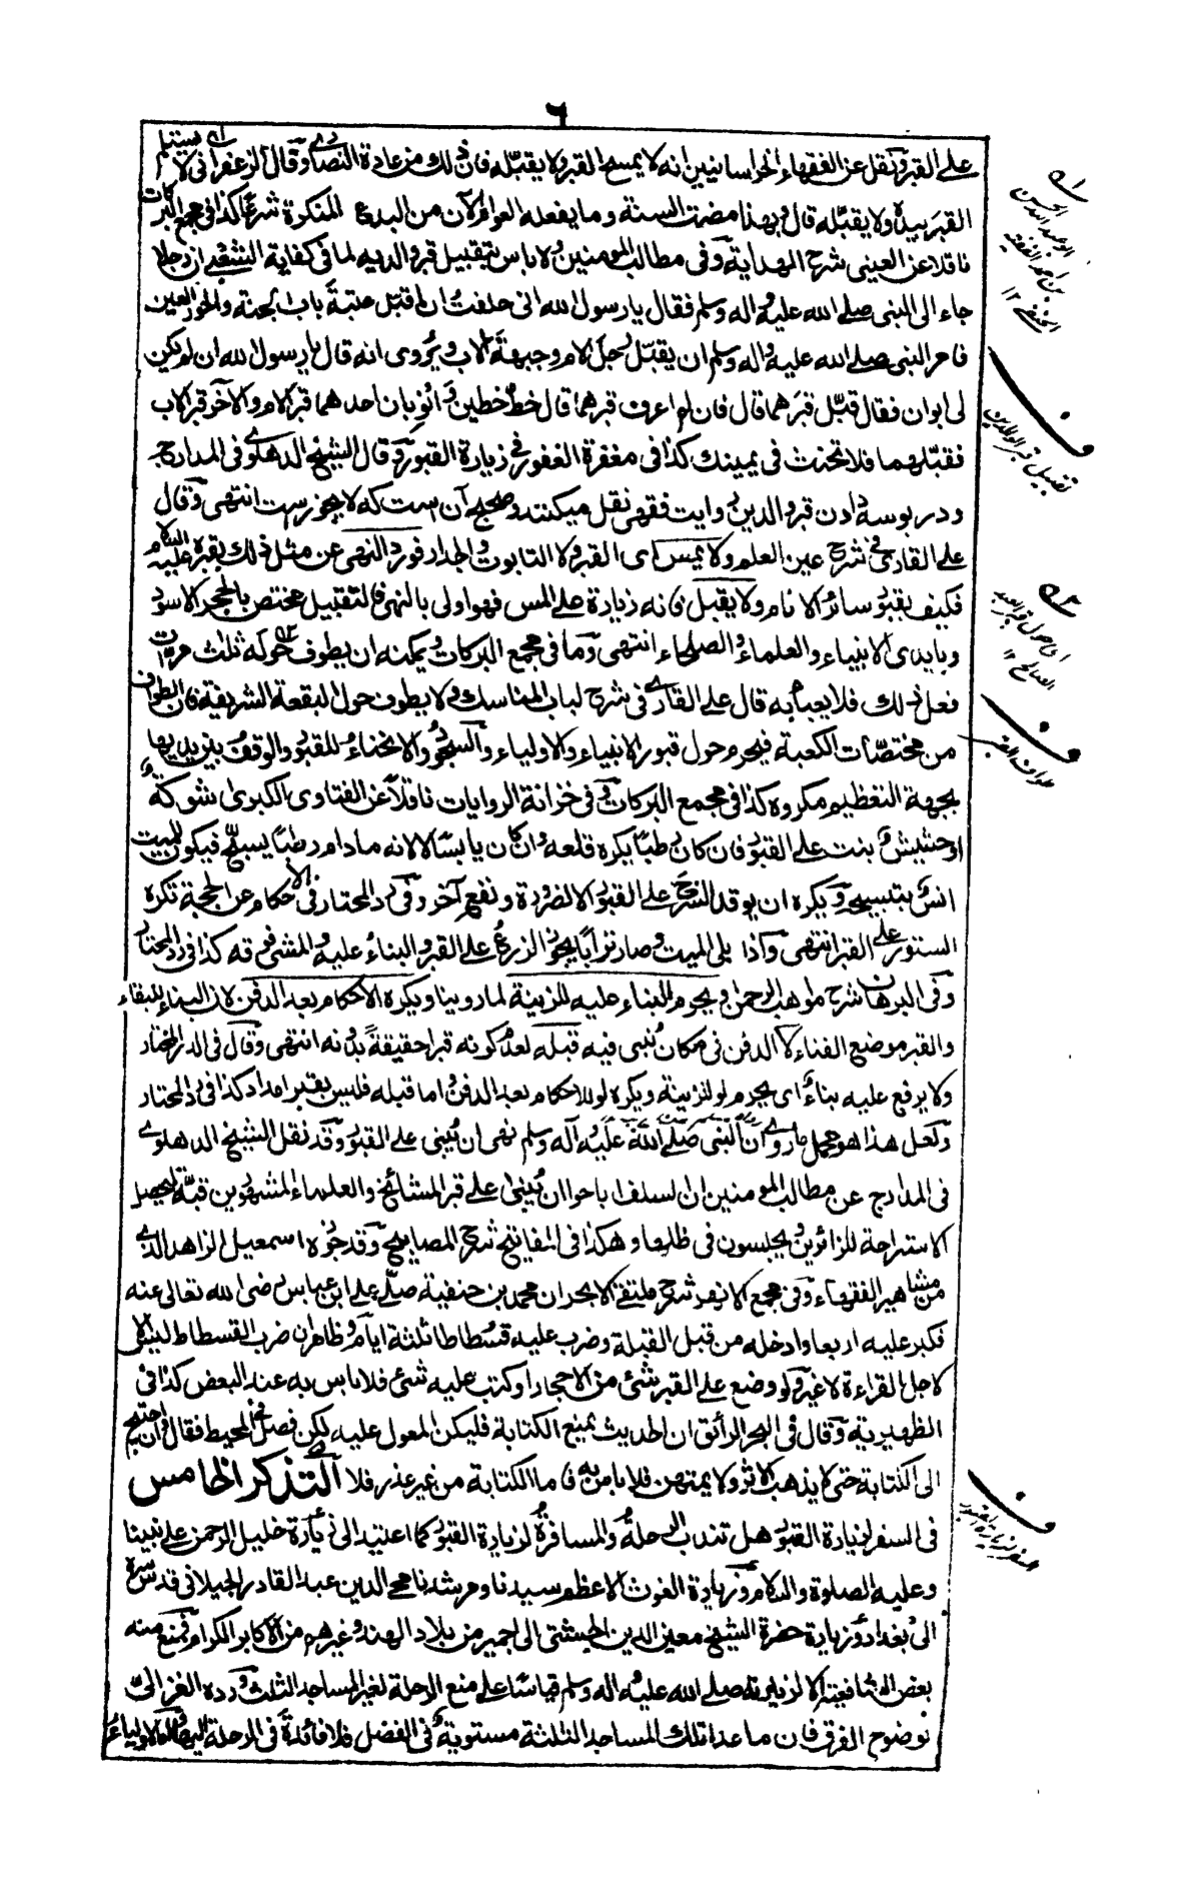 ٦
على القبر ونقل عن الفقهاء الخراسانيين انه لا يمسح القبر ولا يقبّله فان ذلك من عادة النصارى وقال الزعفرانى لا يستلم
القبر بيده ولا يقبّله قال وبهذا مضت السنة وما يفعله العوام الآن من البدع المنكرة شرعًا كذا فى مجمع البركات
ناقلا عن العينى شرح الهداية وفى مطالب المومنين ولا باس بتقبيل قبر والديه لما فى كفاية الشعبى ان رجلا
جاء الى النبى صلى الله عليه واله وسلم فقال يا رسول الله انى حلفت ان اقبّل عتبة باب الجنة والحور العين
فامر النبى صلى الله عليه واله وسلم ان يقبّل رجل الام وجبهة الاب ويُروى انه قال يا رسول الله ان لم يكن
لى ابوان فقال قبّل قبرهما قال فان لم اعرف قبرهما قال خطّ خطين وانو بان احدهما قبر الام والآخر قبر الاب
فقبّلهما فلا تحنث فى يمينك كذا فى مغفرة الغفور فى زيارة القبور وقال الشيخ الدهلوى فى المدارج
ودر بوسه دادن قبر والدين روايت فقهى نقل ميكنند وصحيح آن است كه لا يجوز ست انتهى وقال
على القارى فى شرح عين العلم ولا يمس اى القبر ولا التابوت والجدار فورد النهى عن مثل ذلك بقبره عليه السلام
فكيف بقبور سائر الانام ولا يقبل فانه زيادة على المس فهو اولى بالنهى فالتقبيل مختص بالحجر الاسود
وبايدى الانبياء والعلماء والصلحاء انتهى وما فى مجمع البركات ويمكنه ان يطوف حوله ثلاث مرات
فعل ذلك فلا يعبأ به قال على القارى فى شرح لباب المناسك ولا يطوف حول البقعة الشريفة فان الطواف
من مختصّات الكعبة فيحرم حول قبور الانبياء والاولياء والسجود والانحناء للقبور والوقوف بين يديها
بجهة التعظيم مكروه كذا فى مجمع البركات وفى خزانة الروايات ناقلا عن الفتاوى الكبرى شوكة
او حشيش نبت على القبور فان كان رطبًا يكره قلعه وان كان يابسًا لا لانه ما دام رطبًا يسبّح فيكون للميت
انس بتسبيحه ويكره ان يوقد السرج على القبور الا لضرورة ونفع آخر وفى رد المحتار فى الاحكام عن الحجة تكره
الستور على القبر انتهى واذا بلى الميت وصار ترابًا يجوز الزرع على القبر والبناء عليه والمشى فوقه كذا فى رد المحتار
وفى البرهان شرح مواهب الرحمن ويحرم البناء عليه للزينة لما روينا ويكره الاحكام بعد الدفن لان البناء للبقاء
والقبر موضع الفناء لا الدفن فى مكان بُنى فيه قبله لعدم كونه قبرا حقيقةً بدونه انتهى وقال فى الدر المختار
ولا يرفع عليه بناء اى يحرم لو للزينة ويكره لو للاحكام بعد الدفن واما قبله فليس بقبر امداد كذا فى رد المحتار
ولعل هذا هو محمل ما روى ان النبى صلى الله عليه آله وسلم نهى ان يُبنى على القبور وقد نقل الشيخ الدهلوى
فى المدارج عن مطالب المومنين ان السلف اباحوا ان يُبنى على قبر المشائخ والعلماء المشهورين قبّة ليحصل
الاستراحة للزائرين ويجلسون فى ظلها وهكذا فى المفاتيح شرح المصابيح وقد جوّزه اسمعيل الزاهد الذى
من مشاهير الفقهاء وفى مجمع الانهر شرح ملتقى الابحر ان محمد بن حنفية صلّى على ابن عباس رضى الله تعالى عنه
فكبر عليه اربعا وادخله من قبل القبلة وضرب عليه فسطاطا ثلثة ايام وظاهر ان ضرب الفسطاط ليس الا
لاجل القراءة لا غير ولو وضع على القبر شئ من الاحجار او كتب عليه شئ فلا باس به عند البعض كذا فى
الظهيرية وقال فى البحر الرائق ان الحديث يمنع الكتابة فليكن المعول عليه لكن فصل فى المحيط فقال فان احتيج
الى الكتابة حتى لا يذهب الاثر ولا يمتهن فلا باس به فاما الكتابة من غير عذر فلا التذكر الخامس
فى السفر لزيارة القبور هل تندب الرحلة والمسافرة لزيارة القبور كما اعتيد الى زيارة خليل الرحمن على نبينا
وعليه الصلوة والسلام وزيارة الغوث الاعظم سيدنا ومرشدنا محى الدين عبد القادر الجيلانى قدس سره
الى بغداد وزيارة حضرة الشيخ معين الدين الچشتى الى اجمير من بلاد الهند وغيرهم من الاكابر الكرام فمنع منه
بعض الشافعية الا لزيارته صلى الله عليه واله وسلم قياسًا على منع الرحلة لغير المساجد الثلث ورده الغزالى
بوضوح الفرق فان ما عدا تلك المساجد الثلثة مستوية فى الفضل فلا فائدة فى الرحلة اليها
ابو عبد الله الحسن
بن احمد الفقيه
الحنفى ١٢
تقبيل قبر الوالدين
اى حول قبر العبد
الصالح ١٢
طواف القبر
السفر لزيارة القبور